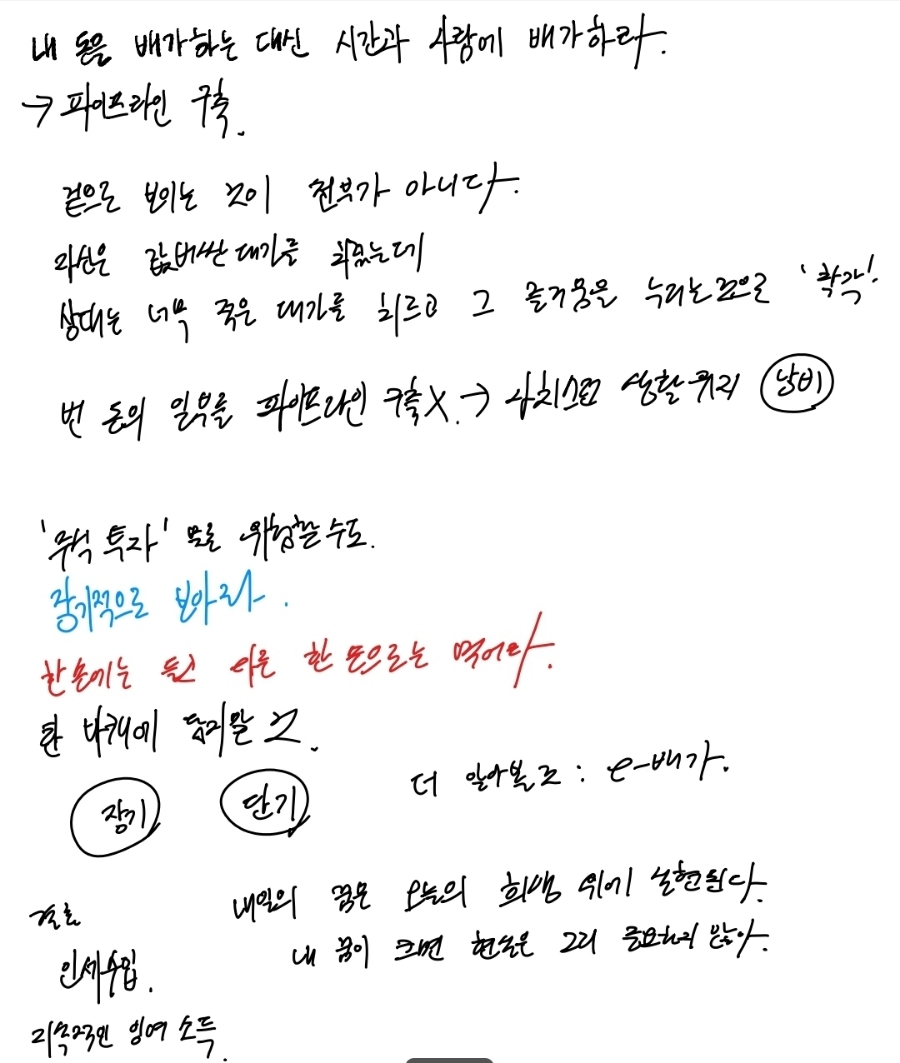 내 돈을 배가하는 대신 시간과 사람에 배가하라.
→ 파이프라인 구축.
겉으로 보이는 것이 전부가 아니다.
자신은 값비싼 대가를 치뤘는데
상대는 너무 적은 대가를 치르고 그 즐거움을 누리는것으로 '착각!'
번 돈의 일부를 파이프라인 구축X. → 사치스런 생활유지 낭비
'주식 투자' 또는 위험할 수도.
장기적으로 보아라.
한 손에는 들고 다른 한 손으로는 먹어라.
한 바구니에 담지말 것.
장기 단기
더 알아볼 것 : e-배가.
결론
내일의 꿈은 오늘의 희생 위에 실현된다.
내 꿈이 크면 현실은 그리 중요하지 않아.
인세수입.
지속적인 잉여 소득.